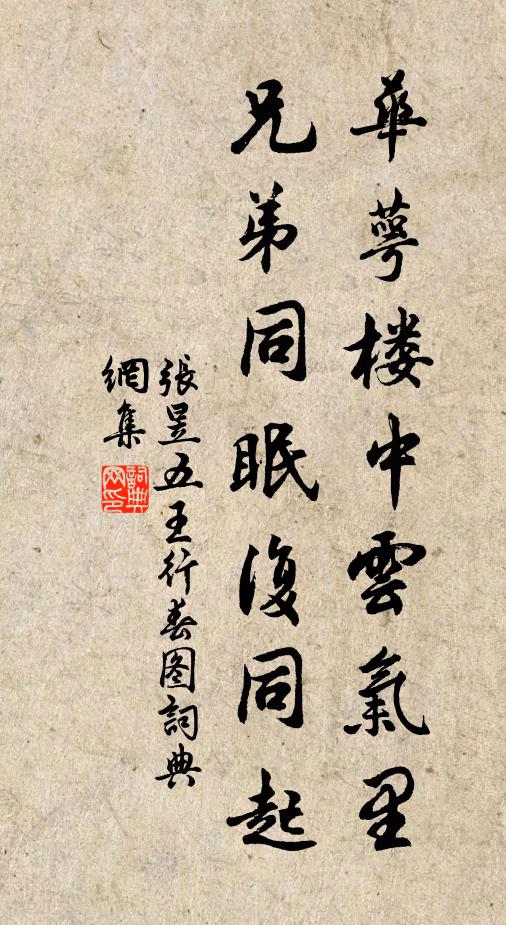 華萼楼中雲氣里
兄弟同眠復同起
張昱五王行春图詞典
網集
詞典网印